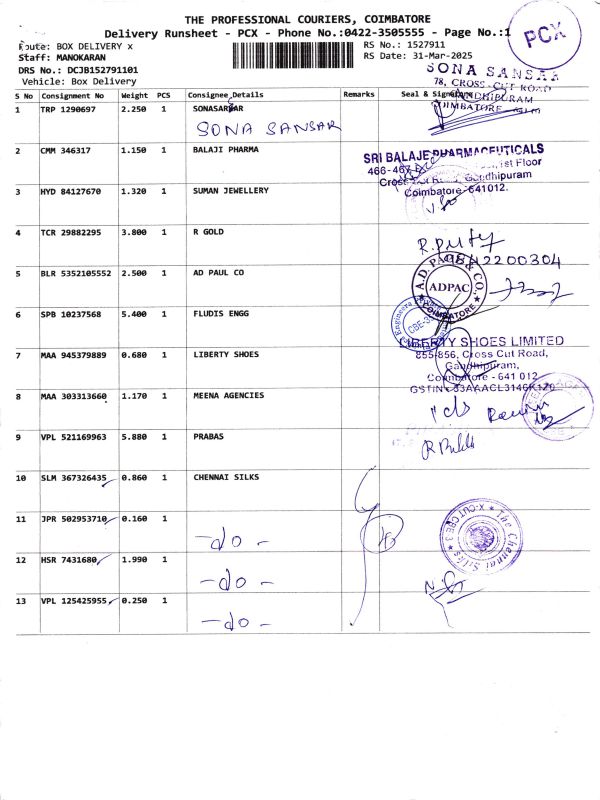 THE PROFESSIONAL COURIERS, COIMBATORE
Delivery Runsheet - PCX - Phone No.:0422-3505555 - Page No.:1
PCX
Route: BOX DELIVERY x
RS No.: 1527911
Staff: MANOKARAN
RS Date: 31-Mar-2025
DRS No.: DCJB152791101
Vehicle: Box Delivery
SONA SANSAR
78, CROSS CUT ROAD
GANDHIPURAM
COIMBATORE
S No Consignment No Weight PCS Consignee Details Remarks Seal & Signature
1 TRP 1290697 2.250 1 SONASARSAR
SONA SANSAR
2 CMM 346317 1.150 1 BALAJI PHARMA
SRI BALAJE PHARMACEUTICALS
1st Floor
Gandhipuram
Coimbatore-641012.
3 HYD 84127670 1.320 1 SUMAN JEWELLERY
4 TCR 29882295 3.800 1 R GOLD
9842200304
5 BLR 5352105552 2.500 1 AD PAUL CO
ADPAC
COIMBATORE
6 SPB 10237568 5.400 1 FLUDIS ENGG
Engineers
7 MAA 945379889 0.680 1 LIBERTY SHOES
LIBERTY SHOES LIMITED
855-856, Cross Cut Road,
Gandhipuram,
Coimbatore - 641 012
8 MAA 303313660 1.170 1 MEENA AGENCIES
9 VPL 521169963 5.880 1 PRABAS
10 SLM 367326435 0.860 1 CHENNAI SILKS
The Chennai Silks
X-CUT CBE
11 JPR 502953710 0.160 1
-do-
12 HSR 7431680 1.990 1
-do-
13 VPL 125425955 0.250 1
-do-